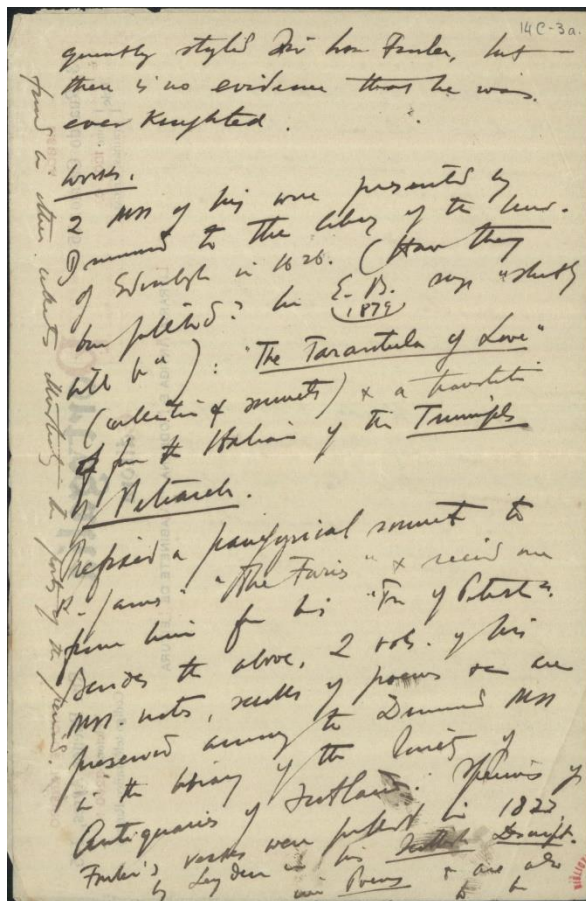 14C-3a.
quently styled Sir Wm Fowler, but
there is no evidence that he was
ever Knighted.
Works.
2 MSS of his were presented by
Drummond to the library of the Univ.
of Edinburgh in 1626. (Have they
been published? In E. B. says "shortly
1879
will be") : "The Tarantula of Love"
(collection of sonnets) & a translation
from the Italian of the Triumphs
of Petrarch.
Prefixed a panegyrical sonnet to
K. James' "The Furies" & received one
from him for his "Tr. of Petrarch".
Besides the above, 2 vols. of his
MSS. notes, scrolls of poems &c are
preserved among the Drummond MSS
in the library of the Society of
Antiquaries of Scotland. Specimens of
Fowler's verses were published in 1822
by Leyden in his Scottish Descript.
ive Poems & are also
to be
found in other